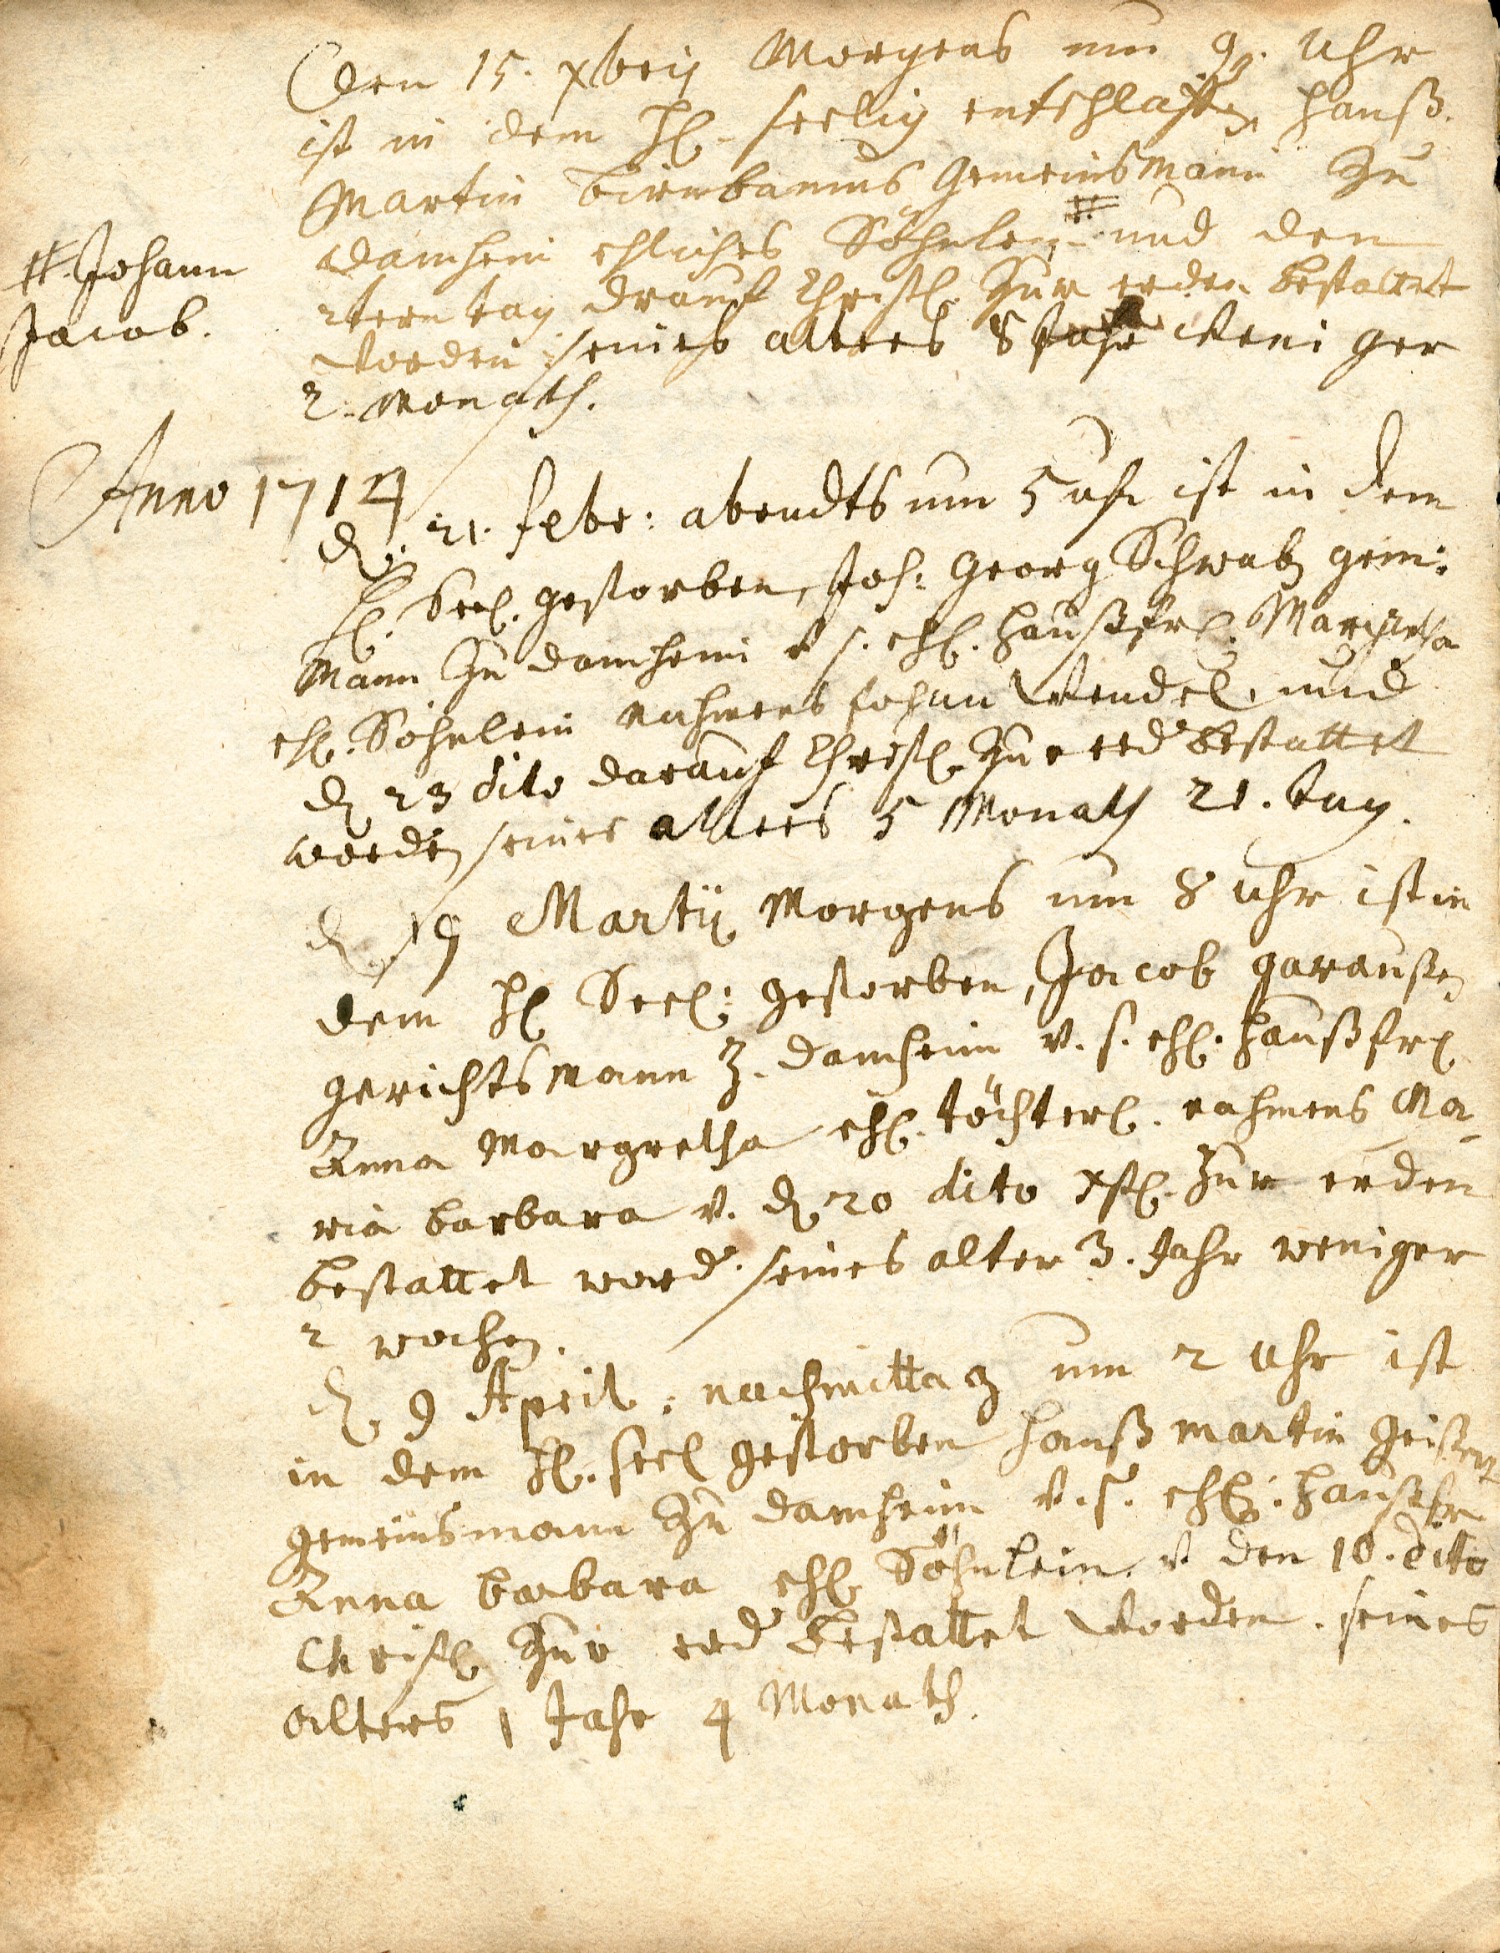 Den 15. xbris Morgens um 9. Uhr
ist in dem H. seelig entschlaffen, Hanß
Martin Birnbaums Gemeinsmann Zu
Damheim ehliches Söhnlein # und den
2tern tag drauf Christl. Zur erden bestattet
worden seines alters 8 Jahr weniger
2. Monath.
#. Johann
Jacob.
Anno 1714
d. 21. febr: abendts um 5 uhr ist in dem
H. Seel. gestorben, Joh: Georg Schwab gem:
Mann Zu Damheim v. s. ehl. Haußfr. Margretha
ehl. Söhnlein nahmens Johan Wendel. und
d. 23 dito darauf Christl. Zur erd bestattet
worden seines alters 5 Monath 21. tag.
d. 19 Martij Morgens um 8 Uhr ist in
dem H. Seel: gestorben, Jacob garaußen
gerichtsmann Z. Damheim v. s. ehl. Haußfr.
Anna Margretha ehl. töchterl. nahmens Ma-
ria barbara v. d. 20 dito xstl. Zur erden
bestattet word. seines alter 3. Jahr weniger
2 wochen.
d. 9 April: nachmittag um 2 Uhr ist
in dem H. seel gestorben Hanß martin
gemeinsmann Zu Damheim v. s. ehl. Haußfr
Anna barbara ehl. Söhnlein. v den 10. dito
Christl. Zur erd bestattet worden. seines
alters 1 Jahr 4 Monath.